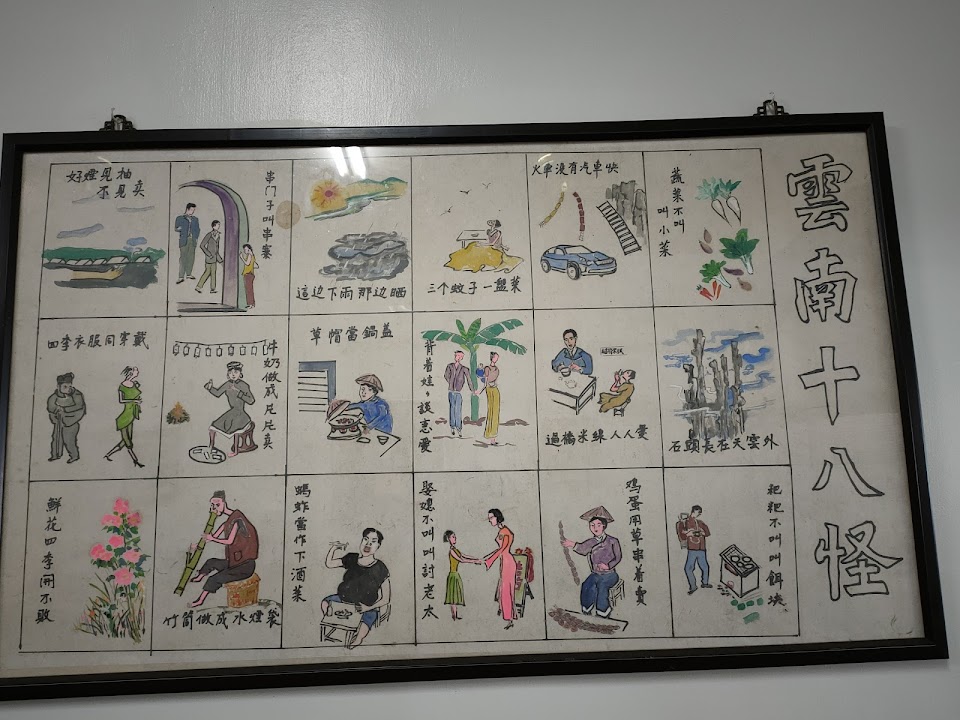 雲南十八怪
蔬菜不叫
叫小菜
火車没有汽車快
三个蚊子一盤菜
這边下雨那边晒
串门子叫串寨
好煙見抽
不見卖
石頭長在天雲外
過橋米線人人愛
背着娃々談恋愛
草帽當鍋盖
牛奶做成片片卖
四季衣服同穿戴
粑粑不叫叫餌块
鸡蛋用草串着賣
娶媳不叫叫討老太
螞蚱當作下酒菜
竹筒做成水煙袋
鮮花四季開不敗